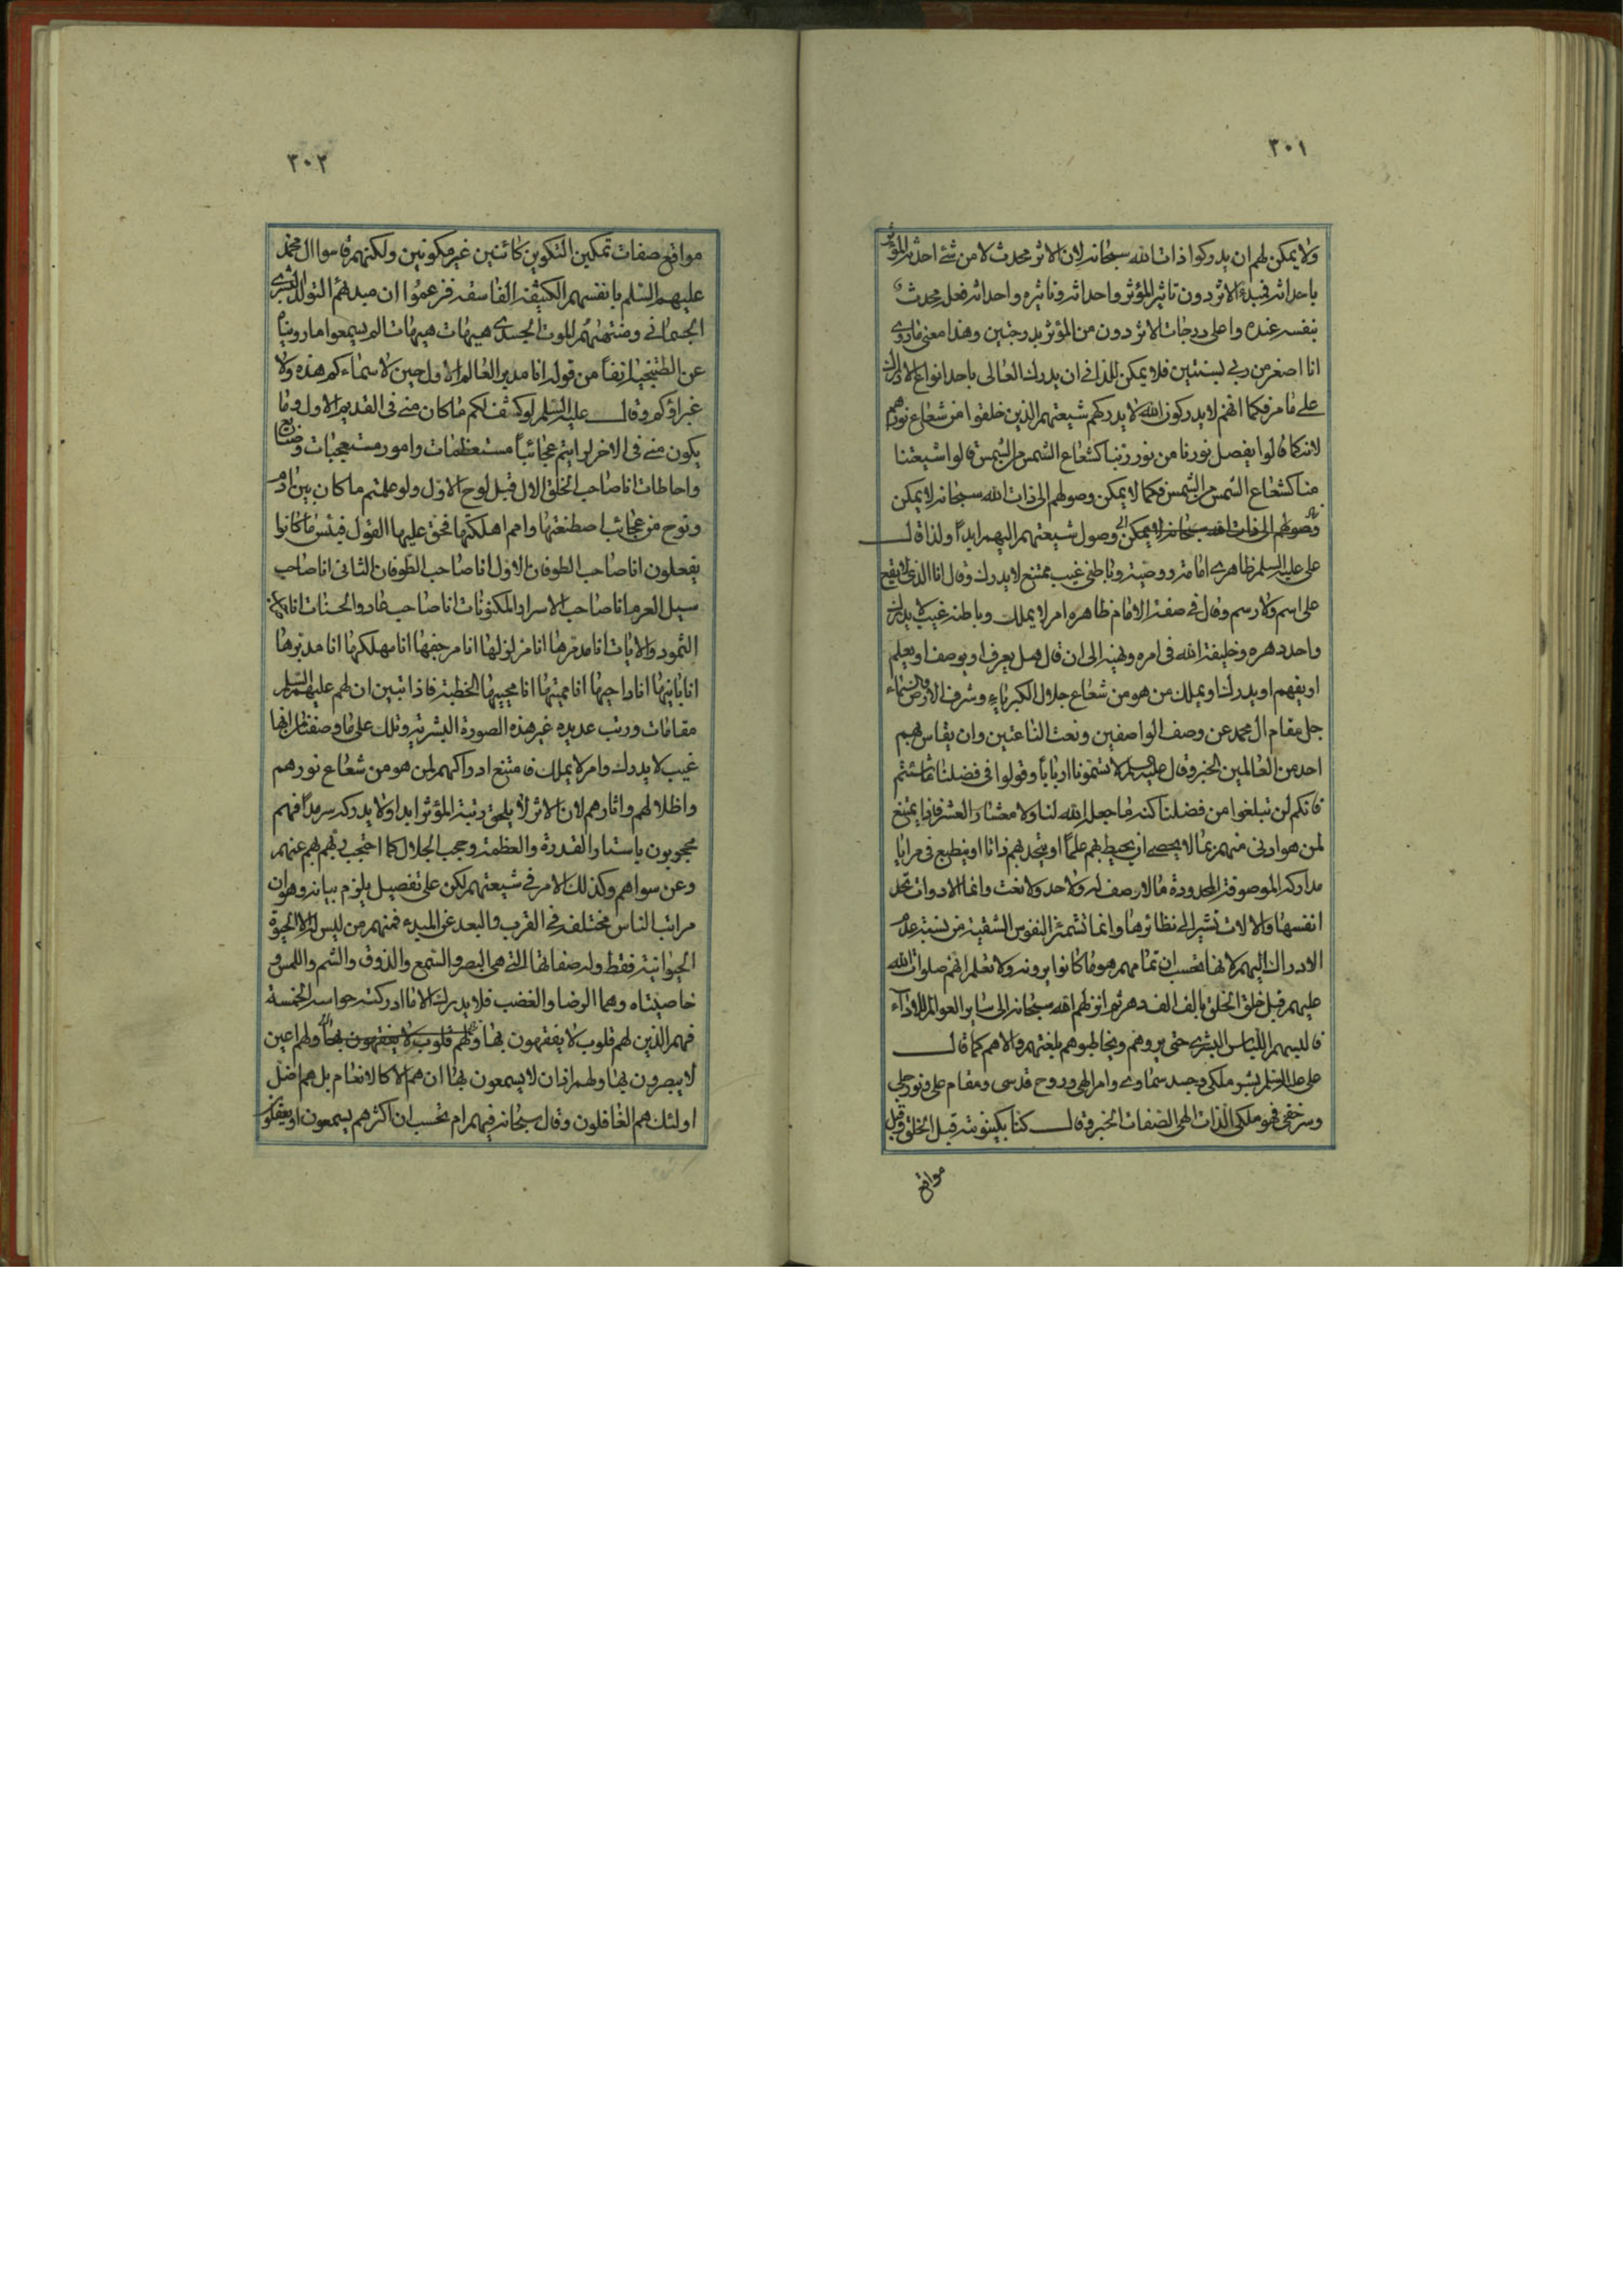 ٣٠١
ولا يمكن لهم ان يدركوا ذات الله سبحانه لان الاثر محدث لا من شئ احدثه المؤثر
باحداثه فمبدء الاثر دون تاثير المؤثر واحداثه وتاثيره واحداثه فعل محدث
بنفسه عنده واعلى درجات الاثر دون من المؤثر بدرجتين وهذا معنى ماروى
انا اصغر من ربى بسنتين فلا يمكن للدانى ان يدرك العالى باحد انواع الادراك
على ما مر فكما انهم لا يدركون الله لا يدركهم شيعتهم الذين خلقوا من شعاع نورهم
لانه كما قالوا يفصل نورنا من نور ربنا كشعاع الشمس من الشمس قالوا شيعتنا
منا كشعاع الشمس من الشمس فكما لا يمكن وصولهم الى ذات الله سبحانه لا يمكن
وصولهم الى ذات الله سبحانه لا يمكن وصول شيعتهم اليهم ابداً ولذا قال
على عليه السلم ظاهرى امامة ووصية وباطنى غيب ممتنع لا يدرك وقال انا الذى لا يقع
على اسم ولا رسم وقال فى صفة الامام ظاهره امر لا يملك وباطنه غيب لا يدرك
واحد دهره وخليفة الله فى امره ونهيه الى ان قال هل يعرف او يوصف او يعلم
او يفهم او يدرك او يملك من هو من شعاع جلال الكبرياء وشرف الارض والسماء
جل مقام ال محمد عن وصف الواصفين ونعت الناعتين وان يقاس بهم
احد من العالمين الخبر وقال عليه السلم لا تسمونا ارباباً وقولوا فى فضلنا ما شئتم
فانكم لن تبلغوا من فضلنا كنه ما جعل الله لنا ولا معشار العشر فاذا يمتنع
لمن هو ادنى منهم بما لا يحصى ان يحيط بهم علماً او يتحد بهم ذاتا او ينطبع فى مرايا
مداركه الموصوفة المحدودة ما لا وصف له ولا حد ولا نعت وانما الادوات تحد
انفسها والالات تشير الى نظائرها وانما تشمئز النفوس الشقية من نسبة عدم
الادراك اليهم لانها تحسب ان تمامهم هو ما كانوا يرونه ولا تعلم انهم صلوات الله
عليهم قبل خلق الخلق بالف الف دهر ثم انزلهم الله سبحانه الى ساير العوالم للاداء
فالبسهم اللباس البشرى حتى يروهم ويخاطبوهم بلغتهم والا هم كما قال
على عليه السلم بشر ملكى وجسد سماوى وامر الهى وروح قدسى ومقام على ونور جلى
وسر خفى فهو ملكى الذات الهى الصفات الخبر وقال كنا بكينونته قبل الخلق وقبل
مواقع
٣٠٢
مواقع صفات تمكين التكوين كائنين غير مكونين ولكنهم قاسوا ال محمد
عليهم السلم بانفسهم الكثيفة الفاسقة فزعموا ان مبدئهم التولد البشرى
الجسمانى ومنتهيهم الموت الجسدى هيهات هيهات الم يسمعوا ما رويناه
عن الطتنجية انفاً من قوله انا مدبر العالم الاول حين لا سماءكم هذه ولا
غبراؤكم وقال عليه السلم لو كشف لكم ما كان منى فى القديم الاول وما
يكون منى فى الاخر لرايتم عجائباً مستعظمات وامور مستعجبات وصنايع
واحاطات انا صاحب الخلق الاول قبل نوح الاول ولو علمتم ما كان بين ادم
ونوح من عجائب اصطنعتها وامم اهلكتها فحق عليها القول فبئس ما كانوا
يفعلون انا صاحب الطوفان الاول انا صاحب الطوفان الثانى انا صاحب
سيل العرم انا صاحب الاسرار المكنونات انا صاحب عاد والجنات انا صاحب
الثمود والايات انا مدمرها انا مزلزلها انا مرجفها انا مهلكها انا مدبرها
انا بانيها انا داحيها انا مميتها انا محييها الخطبة فاذا تبين ان لهم عليهم السلم
مقامات ورتب عديده غير هذه الصورة البشرية وتلك على ما وصفنا من انها
غيب لا يدرك وامر لا يملك فامتنع ادراكهم لمن هو من شعاع نورهم
واظلالهم واثارهم لان الاثر لا يلحق رتبة المؤثر ابدا ولا يدركه سرمداً فهم
محجوبون باستار القدرة والعظمة وحجب الجلال كما احتجب ربهم بهم عنهم
وعن سواهم وكذلك الامر فى شيعتهم لكن على تفصيل يلزم بيانه وهو ان
مراتب الناس مختلفة فى القرب والبعد عن المبدء فمنهم من ليس له الا الحيوة
الحيوانية فقط وله صفاتها التى هى البصر والسمع والذوق والشم واللمس و
خاصيتاه وهما الرضا والغضب فلا يدرك الا ما ادركته حواسه الخمسة
فهم الذين لهم قلوب لا يفقهون بها ولهم قلوب لا يفقهون بها ولهم اعين
لا يبصرون بها ولهم اذان لا يسمعون بها ان هم الا كالانعام بل هم اضل
اولئك هم الغافلون وقال سبحانه فيهم ام تحسب ان اكثرهم يسمعون او يعقلون